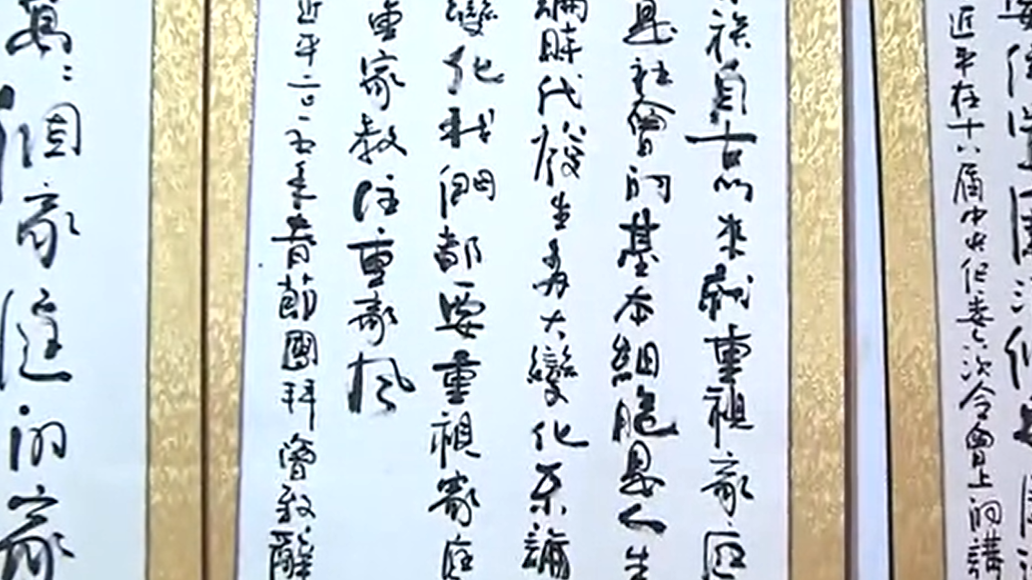 近平在十八届中央纪委六次全會上的講
族自古以来就重視家庭
是社會的基本細胞是人生
論時代發生多大變化不論
變化我們都要重視家庭
重家教注重家風
近平二〇一五年春節團拜會致辭
萬々個家庭的家